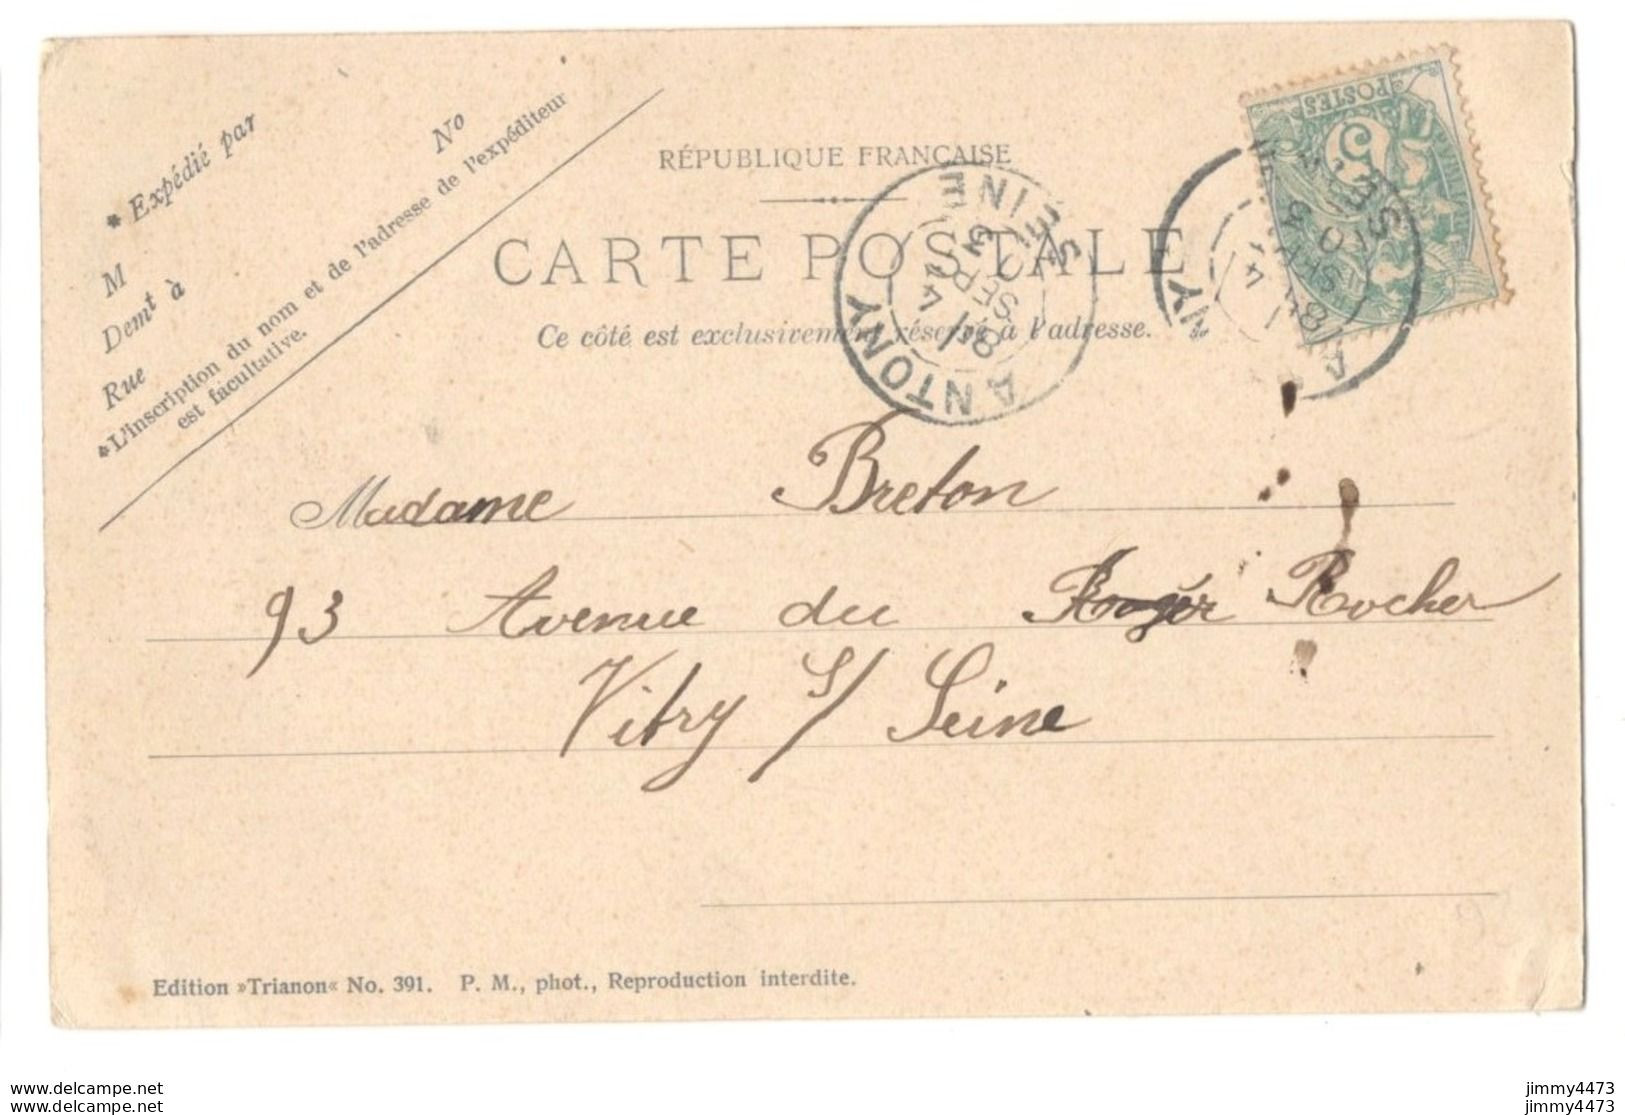 * Expédié par
M
Nº
Demt à
Rue
*L'inscription du nom et de l'adresse de l'expéditeur
est facultative.
RÉPUBLIQUE FRANÇAISE
CARTE POSTALE
Ce côté est exclusivement réservé à l'adresse.
POSTES
5
ANTONY
SEINE
8 1
3
SEPT
04
Madame Breton
93 Avenue du Roger Rocher
Vitry s/ Seine
Edition »Trianon« No. 391. P. M., phot., Reproduction interdite.
www.delcampe.net
www.delcampe.net
jimmy4473
jimmy4473